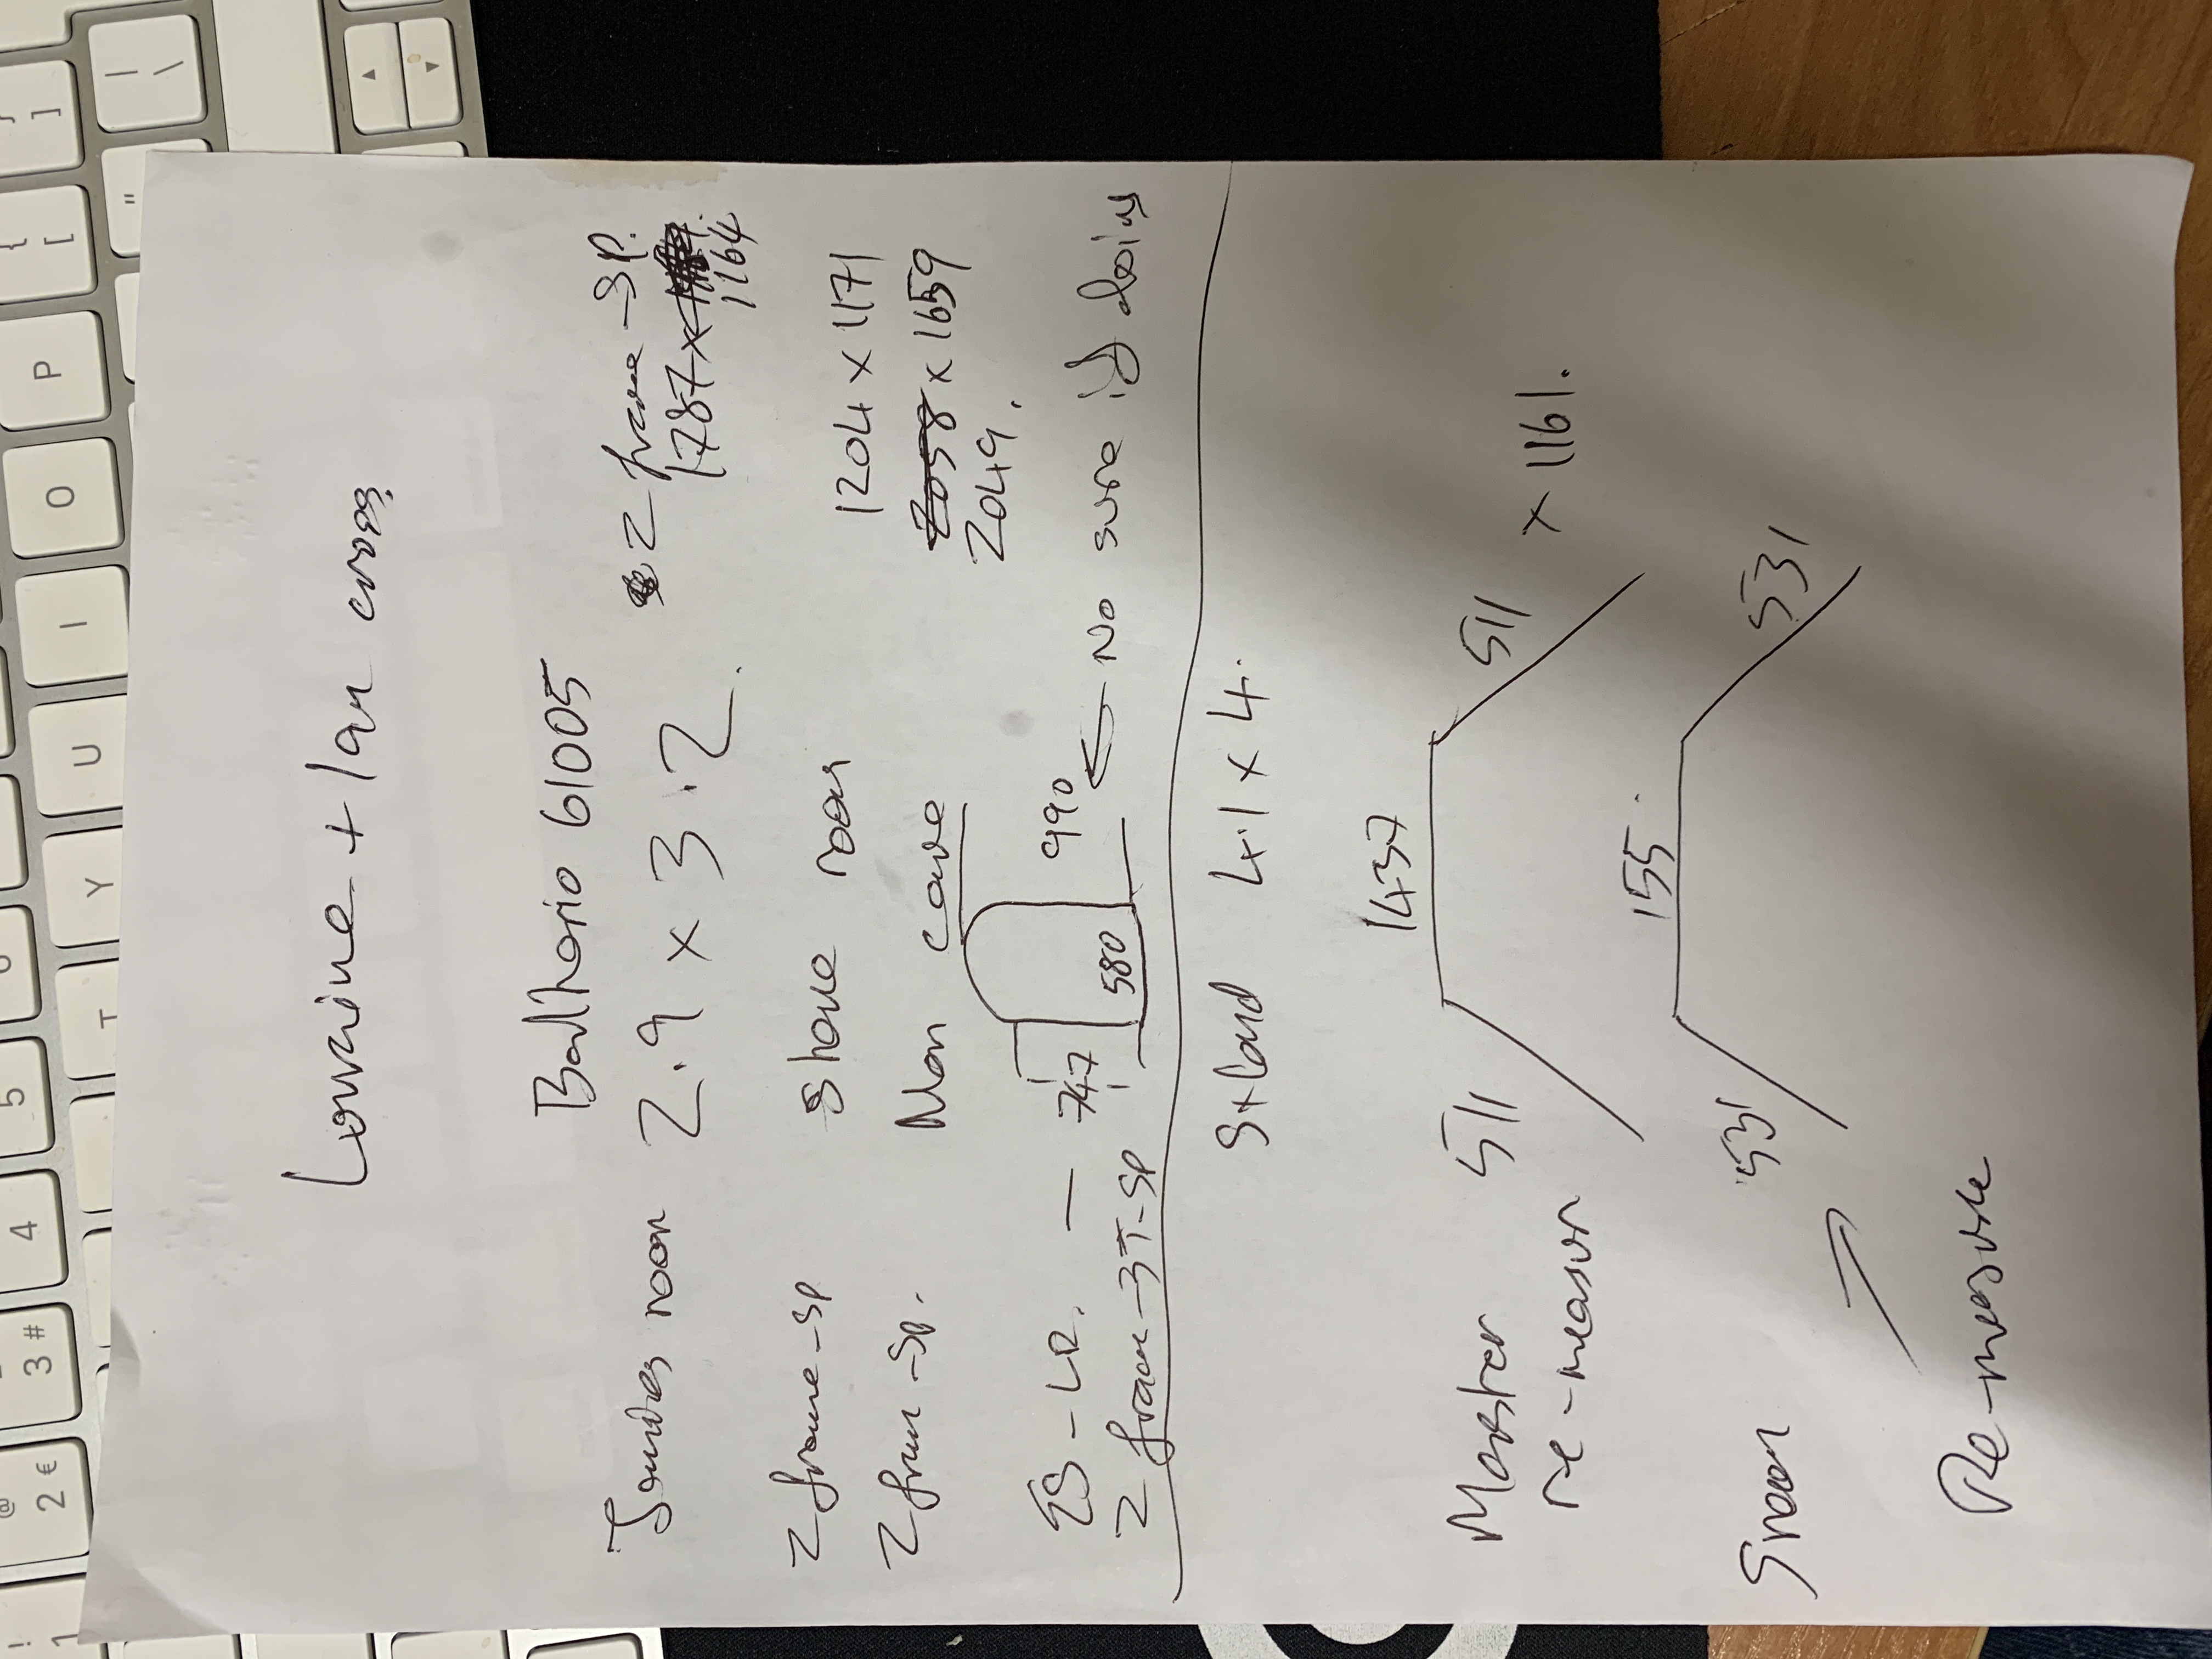 Lorraine + Ian cross
Balthorio 61005
Jamies room 2.9 x 3.2. Z frame - SP.
1787 x
1164
Z frame - SP shoe room 1204 x 1171
Z fram - SP. Man cave 2058 x 1659
2049.
ES - LR. — 747 990 ← No sure if doing
580
Z fram - 3T - SP
Stand 4.1 x 4.
1437
Master 511 511
re-measur x 1161.
155.
Sroom 531 531
Re-measure
{ [
} ]
| \
"
P
O
I
U
Y
T
6
5
4
3 #
@ 2 €
! 1
▲
▼